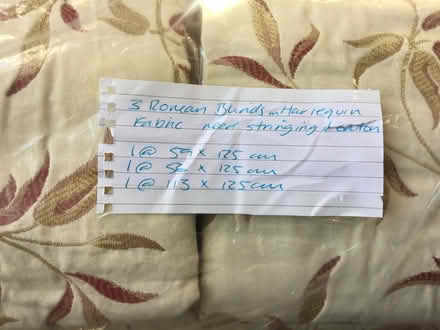 3 Roman Blinds in Harlequin
Fabric need stringing
1 @ 59 x 125 cm
1 @ 56 x 125 cm
1 @ 113 x 125cm